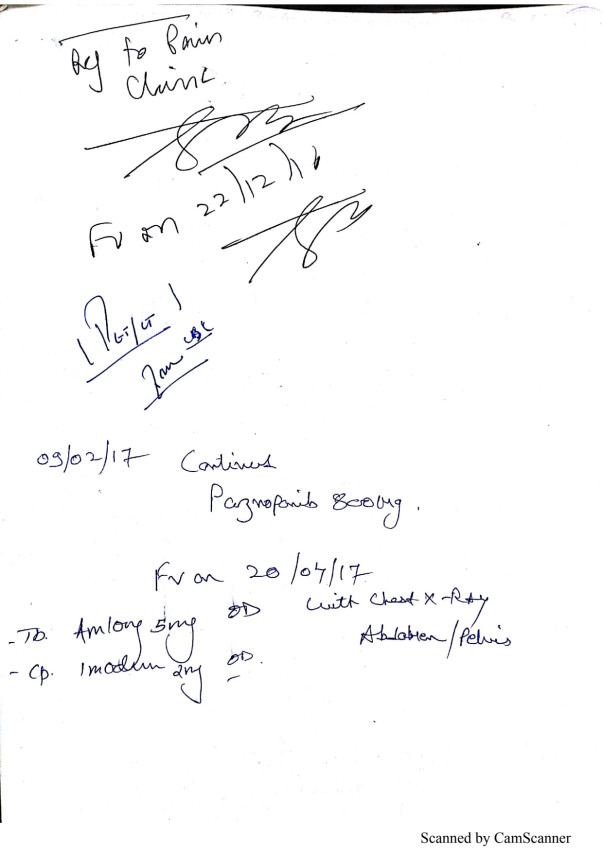 Ref to Pain
Clinic
FU on 22/12/16
09/02/17 Continues
Paznopanib 800mg.
FU on 20/04/17
with Chest X-Ray
- Tb. Amlong 5mg OD
Abdomen/Pelvis
- Cp. Imodium 2mg OD.
Scanned by CamScanner